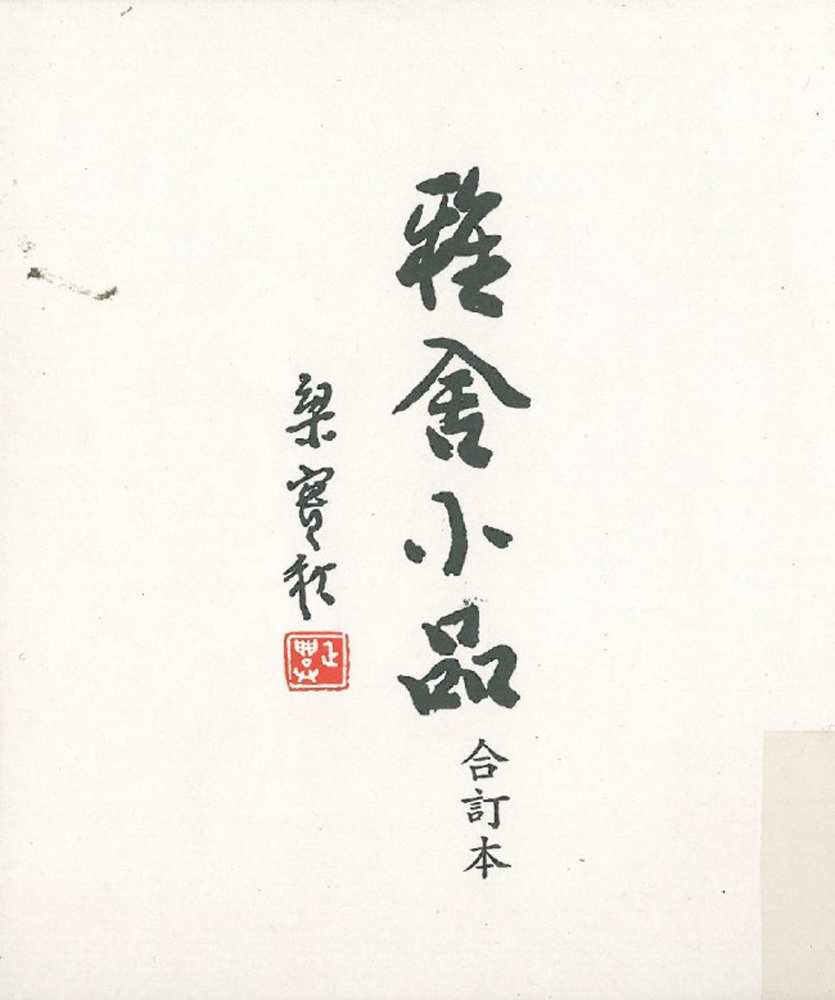 雅舍小品
合訂本
梁實秋